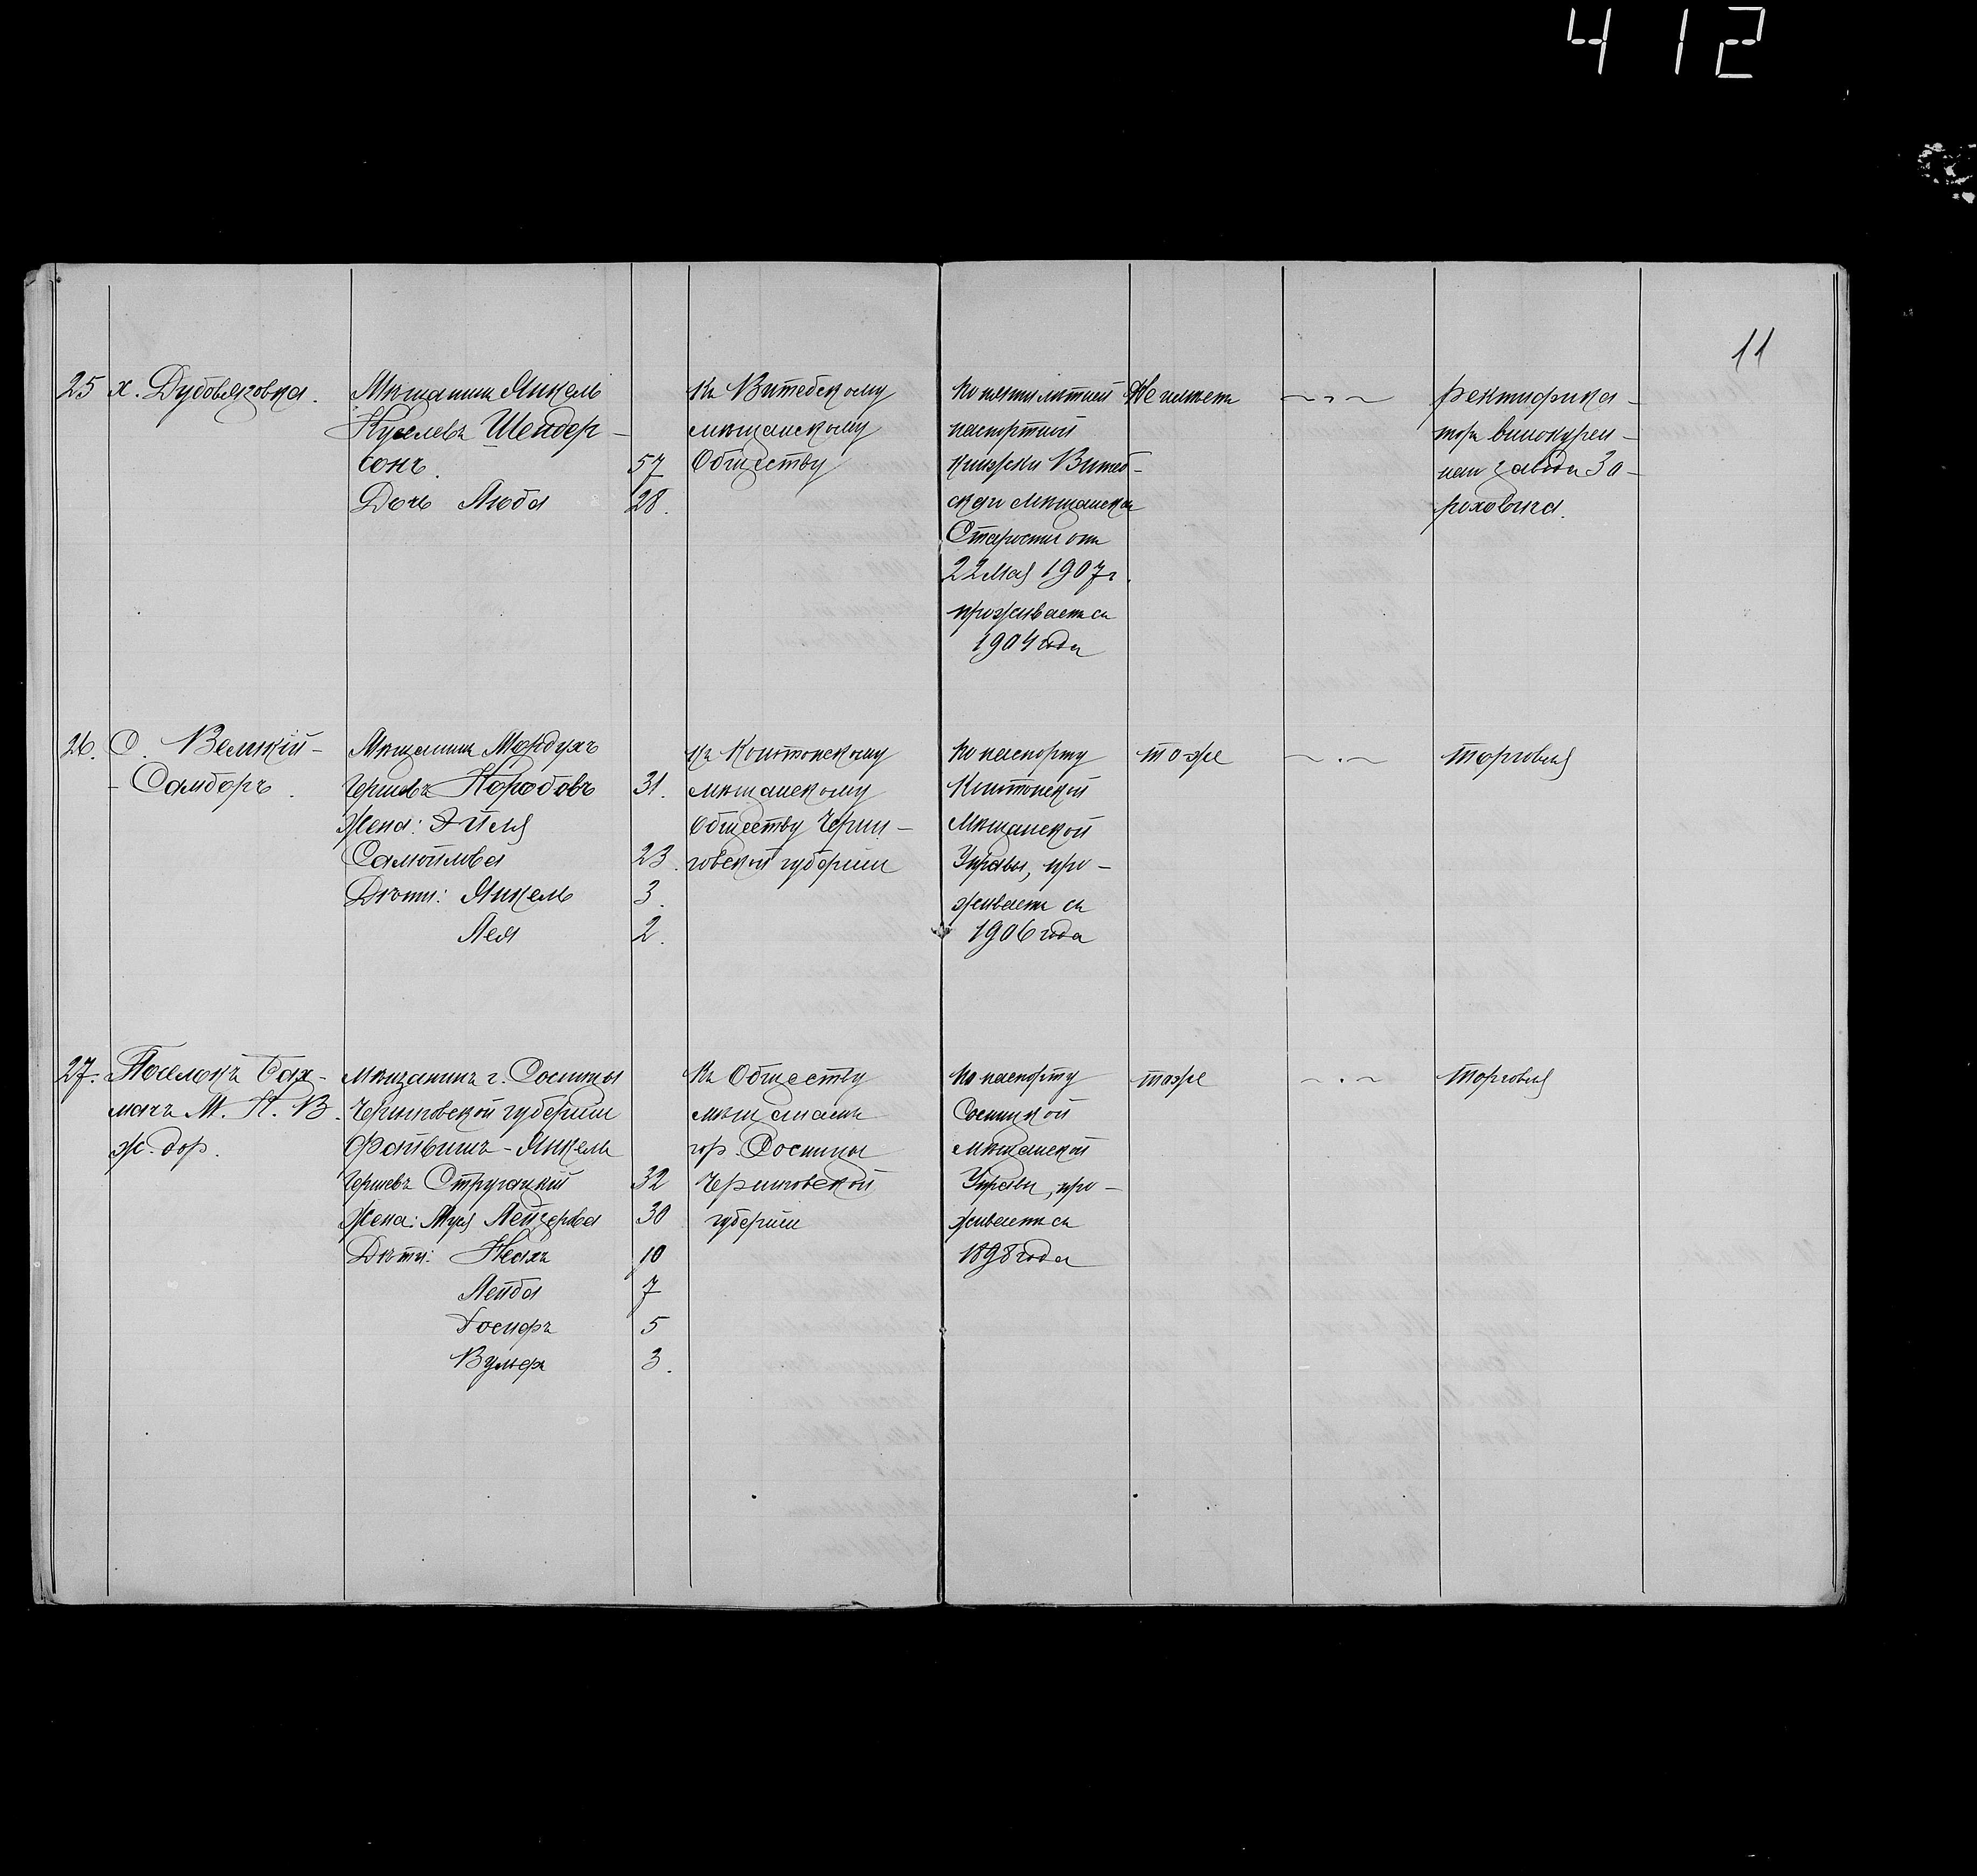 412
11
25 х. Дубовязовка.
Мѣщанинъ Янкель
Куселевъ Шендер-
сонъ. 57
Дочь Люба 28.
Къ Витебскому
мѣщанскому
Обществу
По пятилѣтней
паспортной
книжки Витеб-
скаго Мѣщанскаго
Старосты отъ
22 Мая 1907 г.
проживаетъ съ
1904 года
Не имѣетъ
— „ —
ректифика-
торъ винокурен-
наго завода За-
роховича.
26. С. Великій-
- Самборъ.
Мѣщанинъ Мордухъ
Гершевъ Коробовъ 31.
Жена: Эйля
Самойлова 23.
Дѣти: Янкель 3.
Лея 2.
Къ
мѣщанскому
Обществу Черни-
говской губерніи
По паспорту
Мѣщанской
Управы, про-
живаетъ съ
1906 года
тоже
— „ —
торговля
27. Поселокъ Бах-
мачъ М. К. В.
ж. дор.
Мѣщанинъ г. Сосницы
Черниговской губерніи
Файвишъ-Янкель
Гершевъ Стругацкій 32
Жена: Муся Лейзерова 30
Дѣти: Песахъ 10
Лейба 7
Іосифъ 5
Вульфъ 3.
Къ Обществу
мѣщанамъ
гор. Сосницы
Черниговской
губерніи
По паспорту
Сосницкой
Мѣщанской
Управы, про-
живаетъ съ
1898 года
тоже
— „ —
торговля